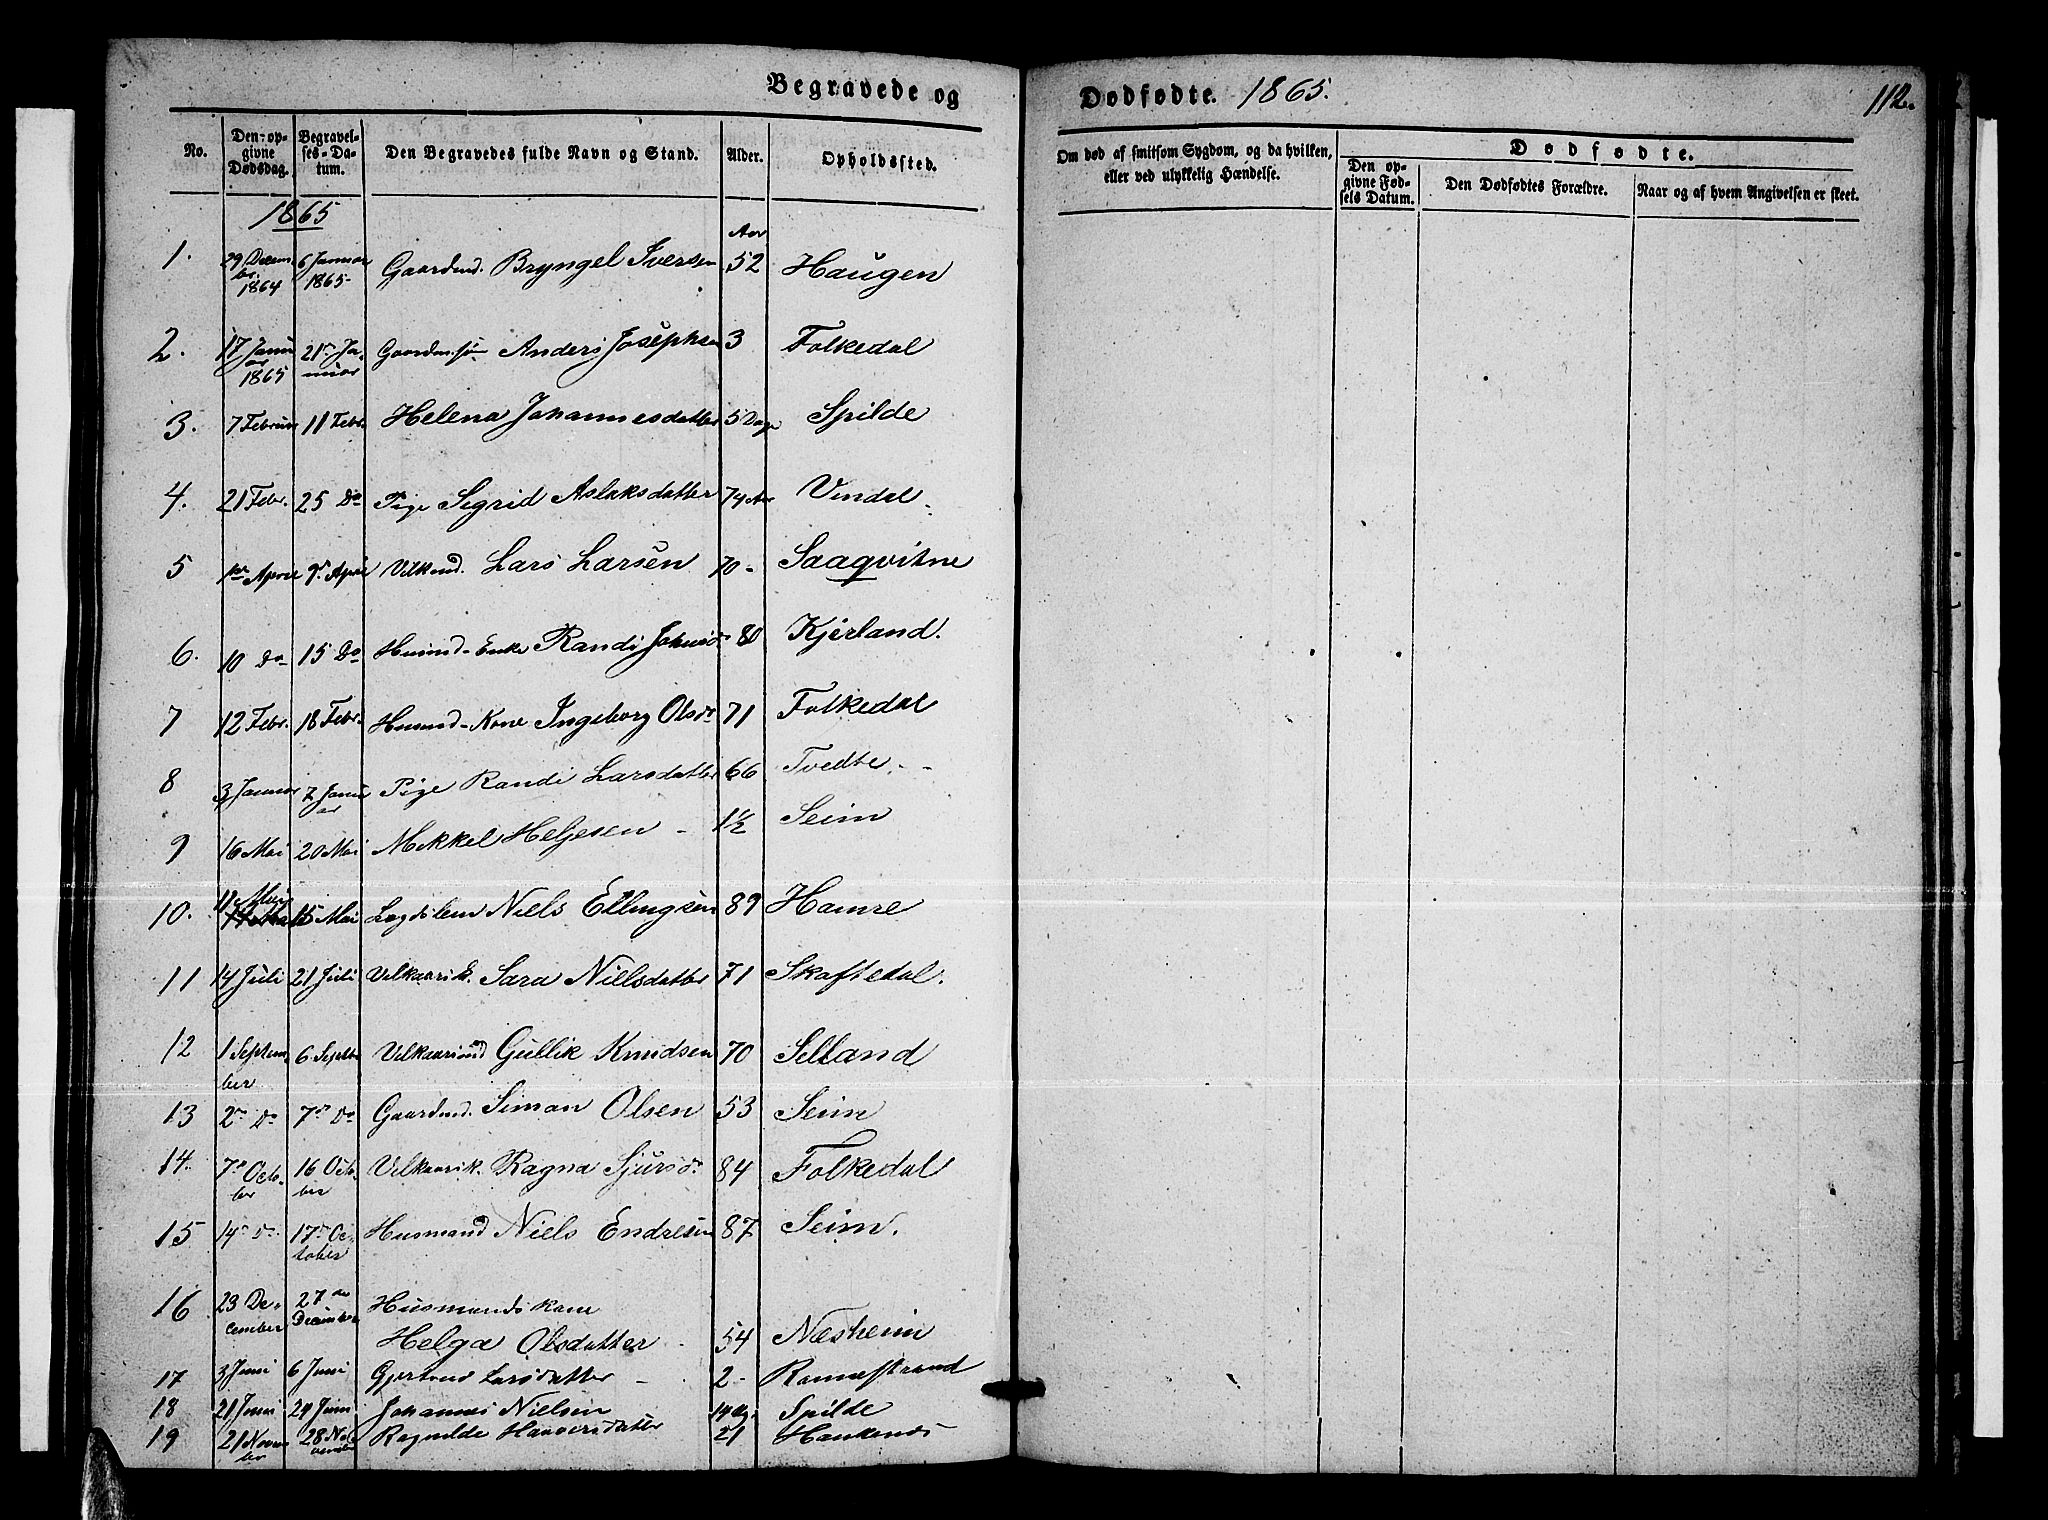 Begravede og
Dødfødte. 1865.
112.
No.
Den opgivne Dødsdag.
Begravelses-Datum.
Den Begravedes fulde Navn og Stand.
Alder.
Opholdssted.
Om død af smitsom Sygdom, og da hvilken, eller ved ulykkelig Hændelse.
Dødfødte.
Den opgivne Fødsels Datum.
Den Dødfødtes Forældre.
Naar og af hvem Angivelsen er skeet.
1865
1. 29 Decembr. 1864 6 Januar 1865 Gaardmd. Bryngel Iversen Aar 52 Haugen
2. 17 Januar 1865 21 Januar Anders Josephsen 3 Folkedal
3. 7 Februar 11 Febr. Helena Johannesdatter 5 Dage Spilde
4. 21 Febr. 25 Do Pige Sigrid Aslaksdatter 74 Aar Vindal
5 April 9 April Vilkmd. Lars Larsen 70 - Saaqvitne
6. 10 Do 15 Do Husmd-Enke Randi Johnsd. 80 Kjerland.
7 12 Febr. 18 Febr. Husmd-Kone Ingeborg Olsdr 71 Folkedal
8 3 Januar 7 Januar Pige Randi Larsdatter 66 Tvedte
9 16 Mai 20 Mai Mikkel Heljesen - 1½ Seim
10. 11 Mai 15 Mai Lægdslem Niels Ellingsen 89 Hamre
11 14 Juli 21 Juli Vilkaarsk. Sara Nielsdatter 71 Skaftedal.
12 1 September 6 Septbr Vilkaarsmd Gullik Knudsen 70 Selland
13 2 Do 7 Do Gaardmd. Simon Olsen 53 Seim
14. 7 October 16 October Vilkaarsk. Ragna Sjursd. 84 Folkedal
15 14 Do 17 October Husmand Niels Endresen 87 Seim.
16 23 December 27 December Husmandskone
Helga Olsdatter 54 Næsheim
17 3 Juni 6 Juni Gjertrud Larsdatter - 2 - Ramnestrand
18 21 Juni 24 Juni Johannes Nielsen Spilde
19 21 Novembr 28 November Ragnilde Haaversdatter 21 Hankenæs